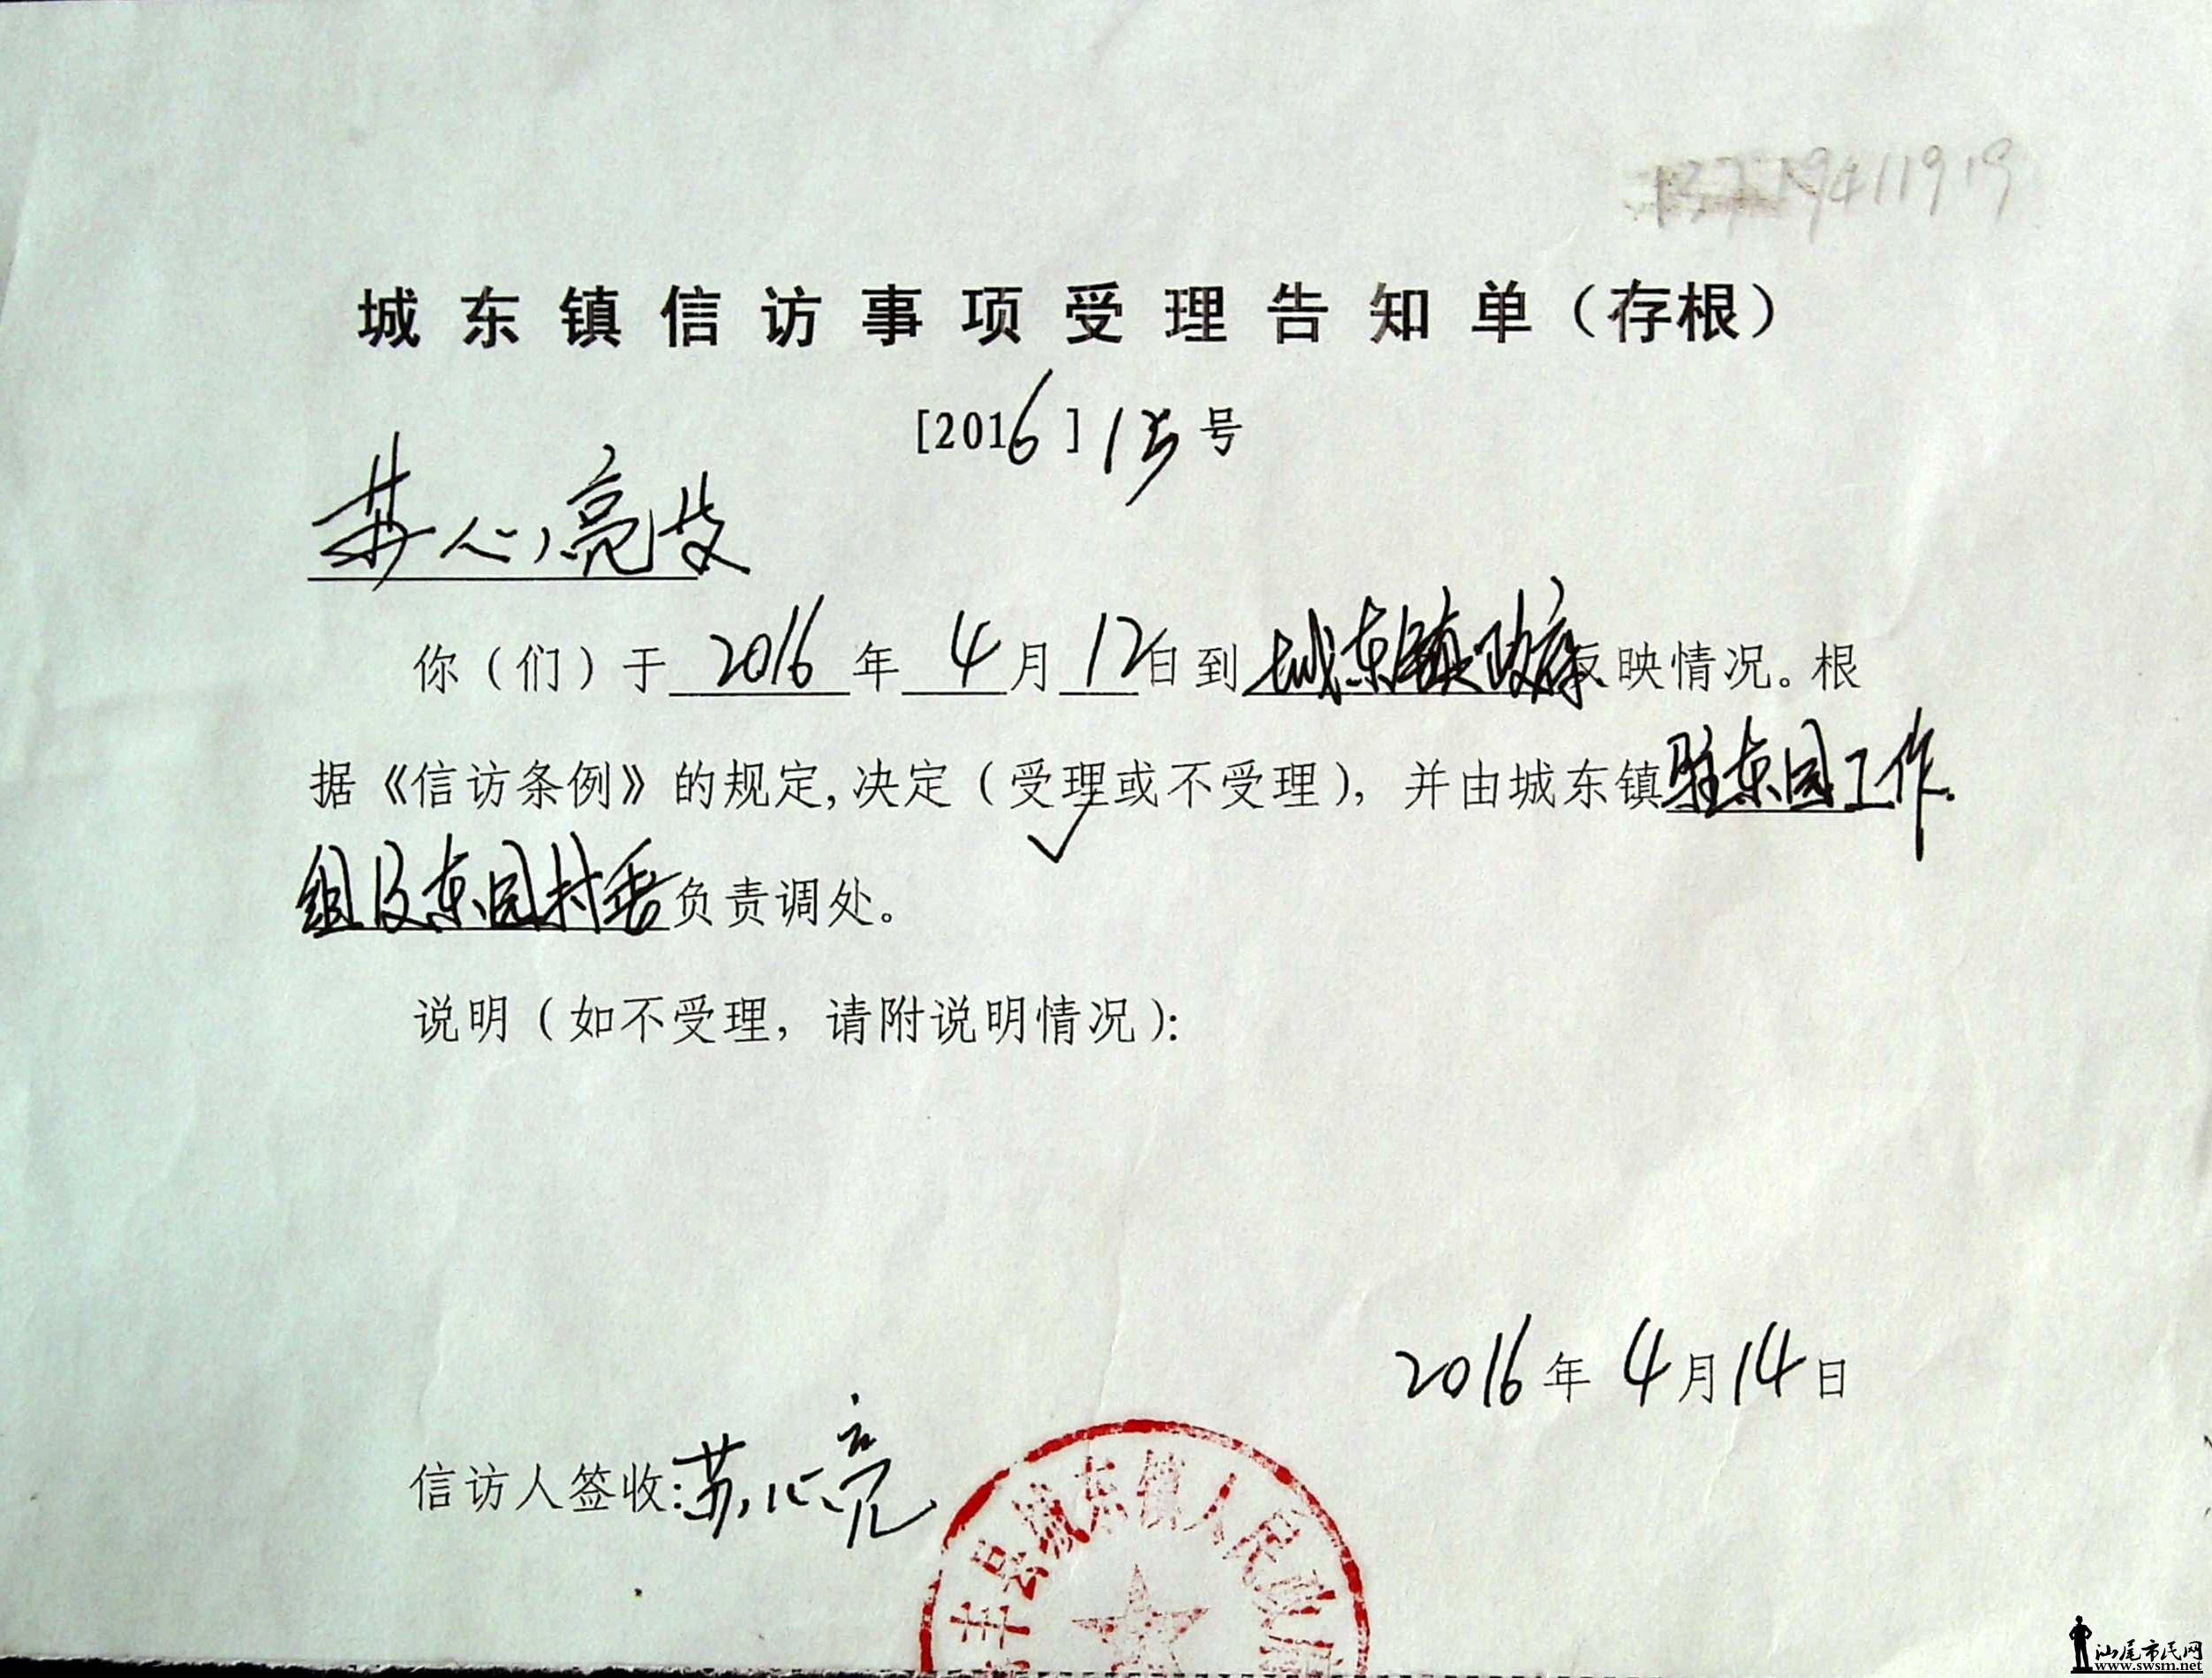 13719411919
城东镇信访事项受理告知单（存根）
[2016]15号
苏心亮等
你（们）于2016年4月12日到城东镇政府反映情况。根
据《信访条例》的规定,决定（受理或不受理），并由城东镇驻东园工作
组及东园村委负责调处。
说明（如不受理，请附说明情况）:
2016年4月14日
信访人签收:苏心亮
丰县城东镇人民政府
汕尾市民网
www.swsm.net